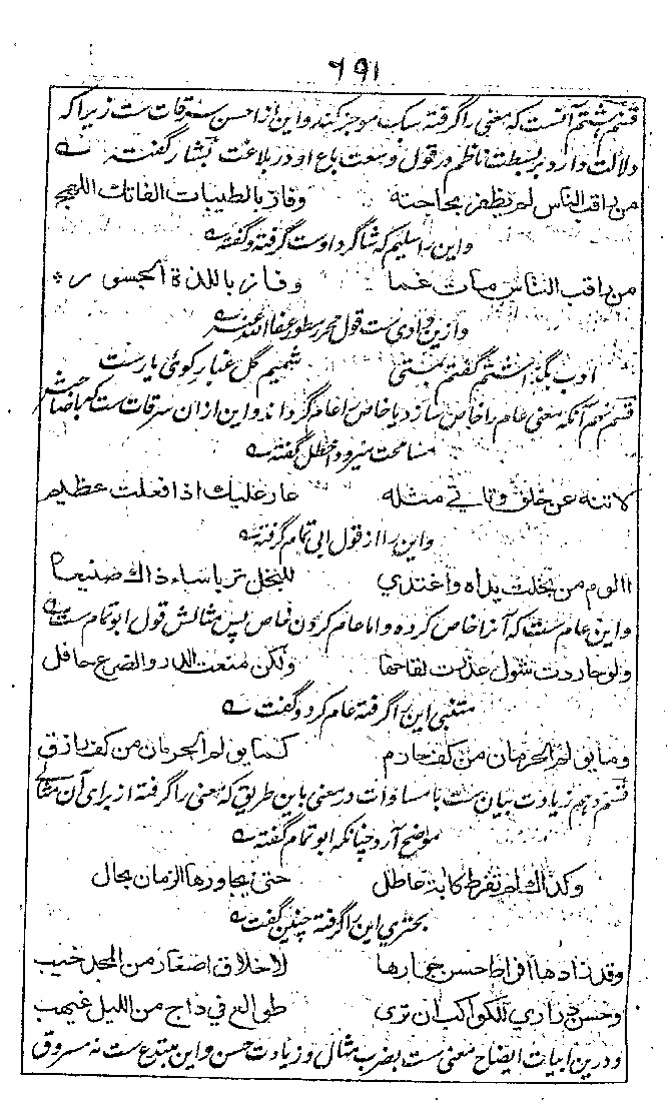 ۶۹۱
قسم هشتم آنست که معنی را گرفته سبک موجز کند و این از احسن سرقات ست زیرا که
دلالت دارد بر بسطت ناظم در قول و وسعت باع او در بلاغت بشار گفته ـه
من راقب الناس لم یظفر بحاجته وفاز بالطیبات الفاتك اللهج
و این را سلیم که شاگرد اوست گرفته و گفته ـه
من راقب الناس مات غما وفاز باللذة الجسور
و ازین وادی ست قول محرر سطور عفا الله عنه ـه
ادب نگذاشتم گفتم شمیم گل غبار کوئی یارست
قسم نهم آنکه معنی عام را خاص سازد یا خاص را عام گرداند و این از ان سرقات ست که با صاحبش
مسامحت میرود اخطل گفته ـه
لا تنه عن خلق وتاتي مثله عار علیك اذا فعلت عظیم
و این را از قول ابی تمام گرفته ـه
االوم من بخلت یداه واغتدي للبخل تربا ساء ذاك صنیعا
و این عام ست که آنرا خاص کرده و اما عام کردن خاص پس مثالش قول ابو تمام ست ـه
ولو حاردت شول عذرت لقاحها ولكن منعت الدر والضرع حافل
متنبی این را گرفته عام کرد و گفت ـه
وما یولم الحرمان من كف حارم كما یولم الحرمان من كف رازق
قسم دهم زیادت بیان ست با مساوات در معنی باین طریق که معنی را گرفته از برای آن مثالے
موضح آرد چنانکه ابو تمام گفته ـه
وكذاك لم تفرط كآبة عاطل حتی یجاورها الزمان بحال
بحتری این را گرفته چنین گفت ـه
وقد زادها افراط حسن جوارها لاخلاق اصفار من المجد خیب
وحسن دراري الكواكب ان تری طوالع في داج من اللیل غیهب
و درین ابیات ایضاح معنی ست بضرب مثال و زیادت حسن و این مبتدع ست نه مسروق